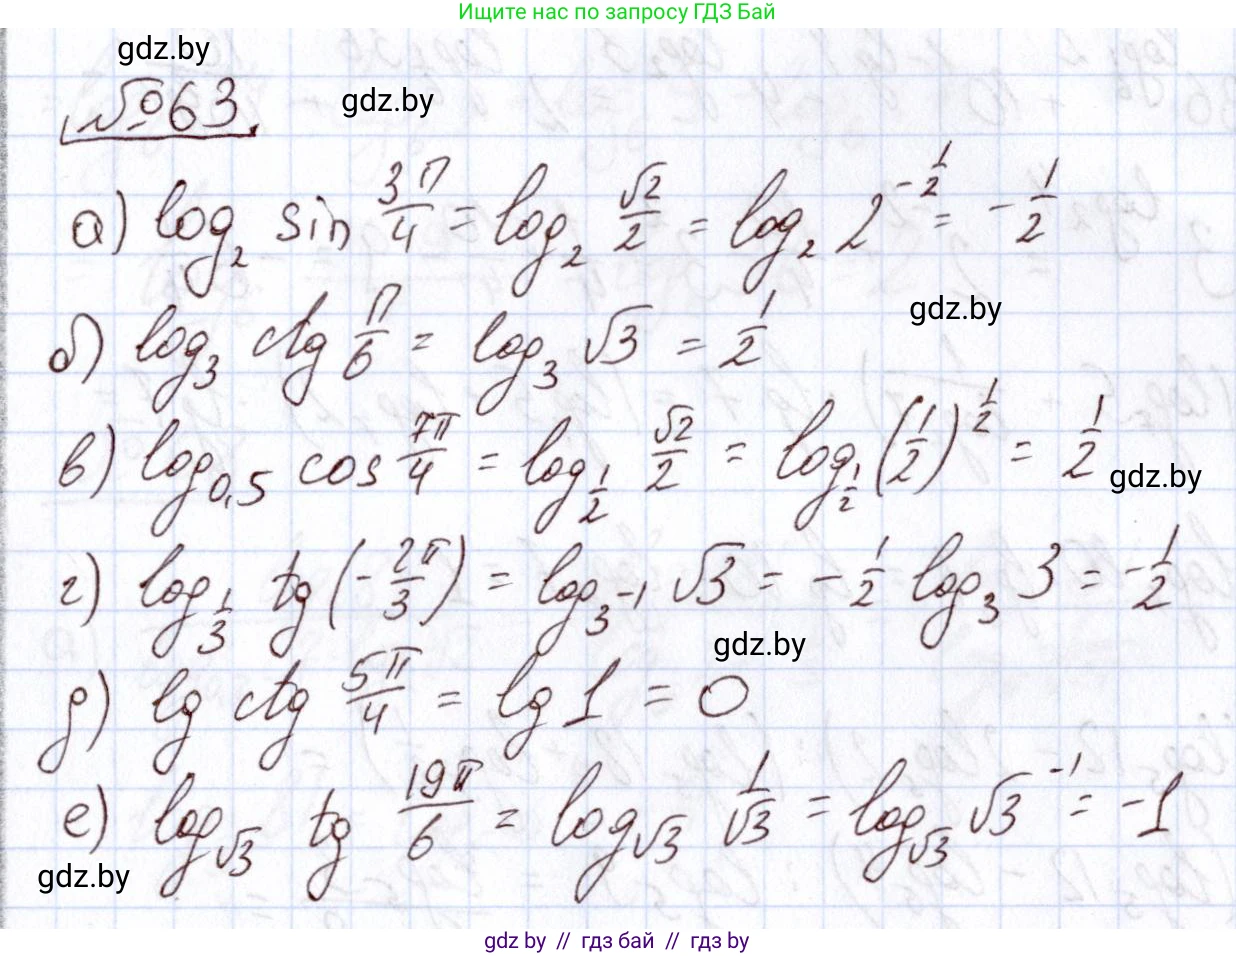 Ищите нас по запросу ГДЗ Бай
gdz.by
№63
gdz.by
а) log₂ sin 3π/4 = log₂ √2/2 = log₂ 2^(-1/2) = -1/2
gdz.by
б) log₃ ctg π/6 = log₃ √3 = 1/2
в) log₀,₅ cos 7π/4 = log_(1/2) √2/2 = log_(1/2) (1/2)^(1/2) = 1/2
gdz.by
г) log_(1/3) tg(-2π/3) = log_(3^-1) √3 = -1/2 log₃ 3 = -1/2
gdz.by
д) lg ctg 5π/4 = lg 1 = 0
е) log_√3 tg 19π/6 = log_√3 1/√3 = log_√3 √3^(-1) = -1
gdz.by
gdz by // гдз бай // гдз by